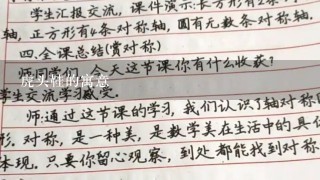 学生汇报交流,课件演示:长方形有2条
轴,正方形有4条对称轴,圆有无数条对称轴.
四.全课总结(赏对称)
师:同 天这节课你有什么收获?
梳头鞋的寓意
学生交流学习感受.
师:通过这节课的学习,我们认识了轴对称图
形.对称,是一种美,是数学美在生活中的具体
体现.只要你留心观察,到处都能找到对称